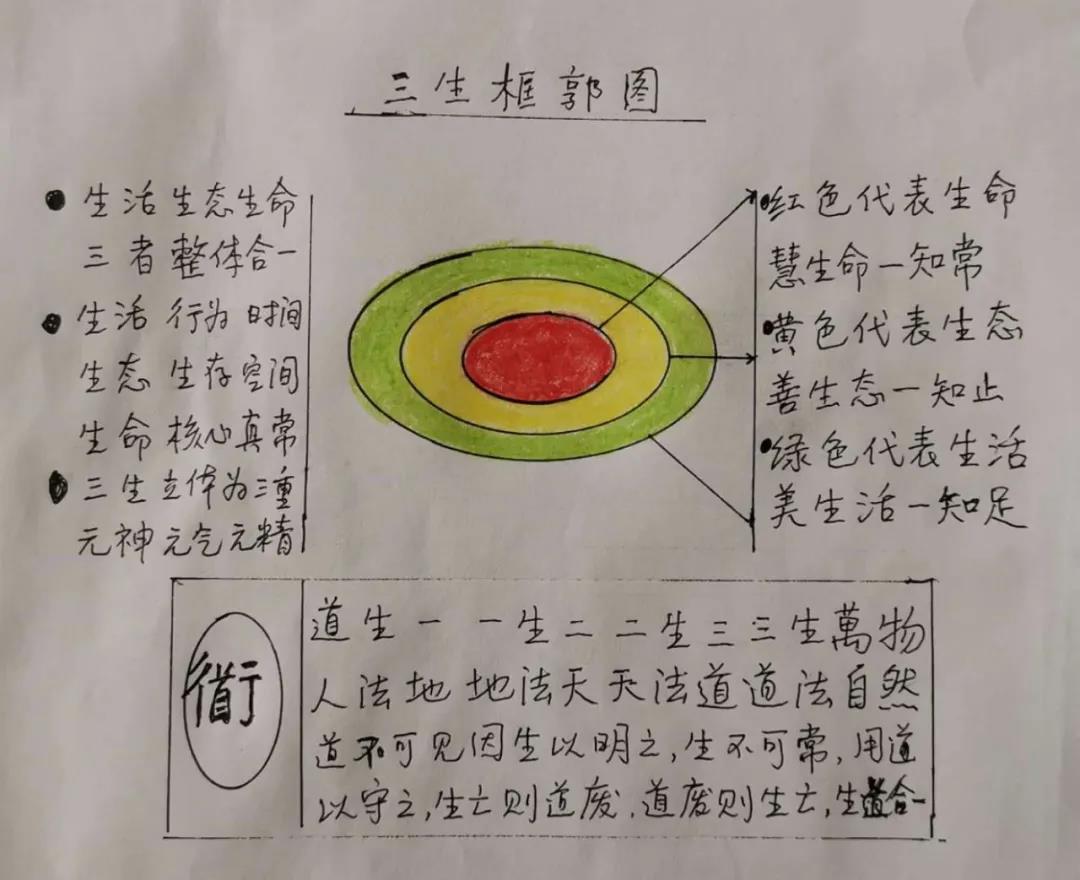 三生框郭图
生活生态生命
三者整体合一
生活 行为 时间
生态 生存空间
生命 核心真常
三生立体为三重
元神元气元精
红色代表生命
慧生命一知常
黄色代表生态
善生态一知止
绿色代表生活
美生活一知足
衟
道生一 一生二 二生三 三生萬物
人法地 地法天 天法道 道法自然
道不可见因生以明之,生不可常,用道
以守之,生亡则道废,道废则生亡,生道合一